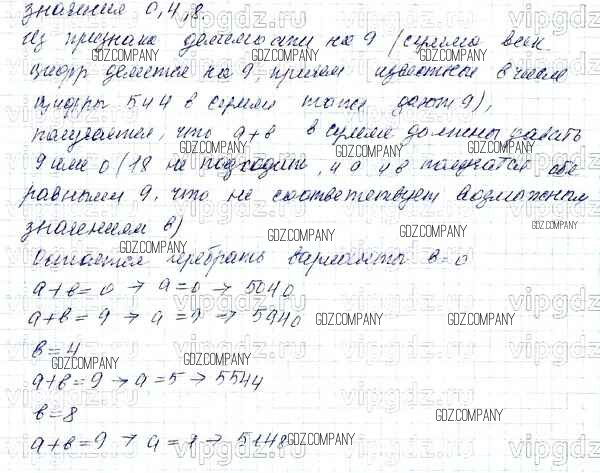 значения 0, 4, 8
Из признака делимости на 9 (сумма всех
цифр делится на 9, причем известные в числе
цифры 5 4 4 в сумме тоже дают 9),
получается, что a+b в сумме должны давать
9 или 0 (18 не подходит, a и b получатся обе
равными 9, что не соответствует возможным
значениям b)
Остается перебрать варианты b=0
a+b=0 → a=0 → 5040
a+b=9 → a=9 → 5940
b=4
a+b=9 → a=5 → 5544
b=8
a+b=9 → a=1 → 5148
GDZ.COMPANY
vipgdz.ru